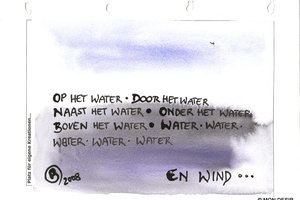 OP HET WATER • DOOR HET WATER
NAAST HET WATER • ONDER HET WATER
BOVEN HET WATER • WATER • WATER •
WATER • WATER • WATER
2008
EN WIND...
Platz für eigene Kreationen...
© MON DESIR